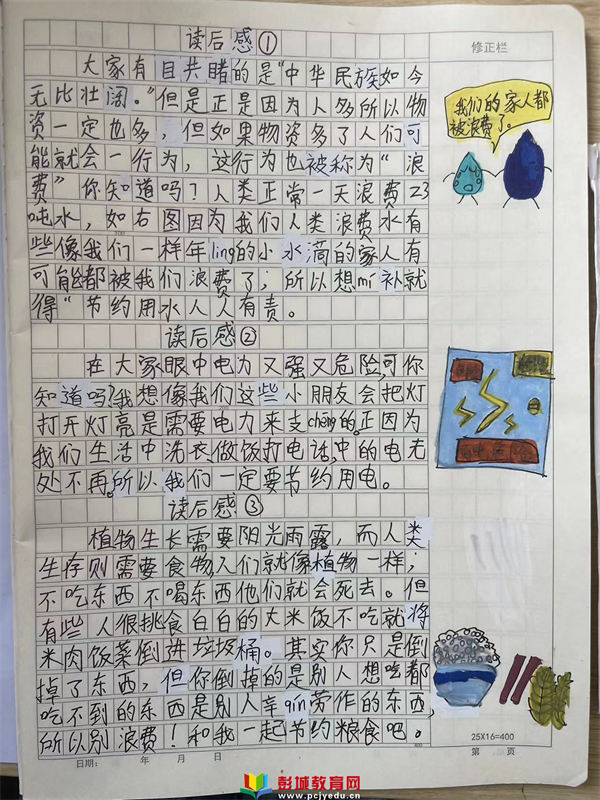 读后感①
修正栏
大家有目共睹的是“中华民族如今
无比壮阔。”但是正是因为人多所以物
资一定也多，但如果物资多了人们可
能就会一行为，这行为也被称为“浪
费”你知道吗？人类正常一天浪费23
吨水，如右图因为我们人类浪费水有
些像我们一样年ling的小水滴的家人有
可能都被我们浪费了；所以想mí补就
得“节约用水人人有责。
我们的家人都
被浪费了。
读后感②
在大家眼中电力又强又危险，可你
知道吗？我想像我们这些小朋友会把灯
打开灯亮是需要电力来支chēng的。正因为
我们生活中洗衣做饭打电话，中的电无
处不再。所以我们一定要节约用电。
读后感③
植物生长需要阳光雨露，而人类
生存则需要食物，人们就像植物一样；
不吃东西不喝东西他们就会死去。但
有些人很挑食白白的大米饭不吃就将
米肉饭菜倒进垃圾桶。其实你只是倒
掉了东西，但你倒掉的是别人想吃都
吃不到的东西是别人辛qín劳作的东西，
所以别浪费！和我一起节约粮食吧。
25X16=400
日期： 年 月 日
第 页
彭城教育网
www.pcjyedu.cn